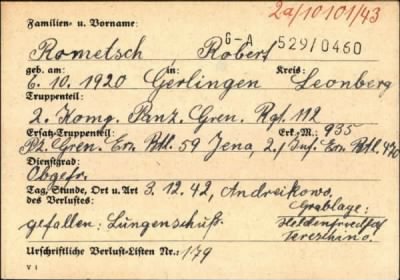 2a/10101/43
Familien- u. Vorname: G-A 529/0460
Rometsch Robert
geb. am: in: Kreis:
6.10.1920 Gerlingen Leonberg
Truppenteil:
2. Komp. Panz. Gren. Rgt. 112
Ersatz-Truppenteil: Erk.-M.: 935
Pz. Gren. Ers. Btl. 59 Jena, 2./Inf. Ers. Btl. 470
Dienstgrad:
Obgefr.
Tag, Stunde, Ort u. Art 3.12.42, Andreikowo.
des Verlustes: Grablage:
gefallen: Lungenschuß. Heldenfriedhof
Vereschino.
Urschriftliche Verlust-Listen Nr.: 179
V 1